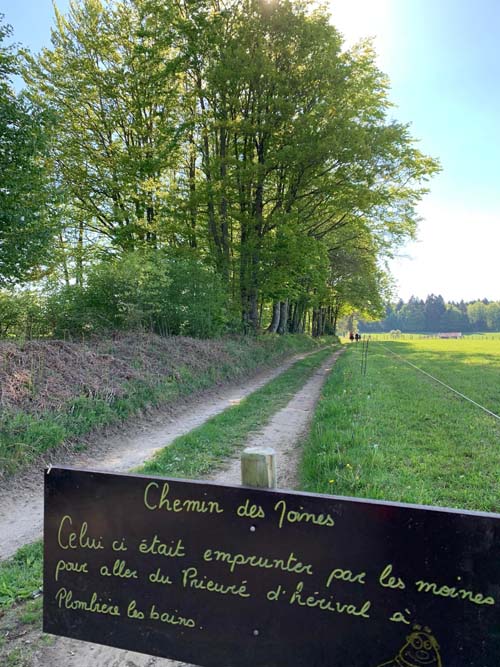 Chemin des Joines
Celui ci était emprunter par les moines
pour aller du Prieuré d'hérival à
Plombière les bains.